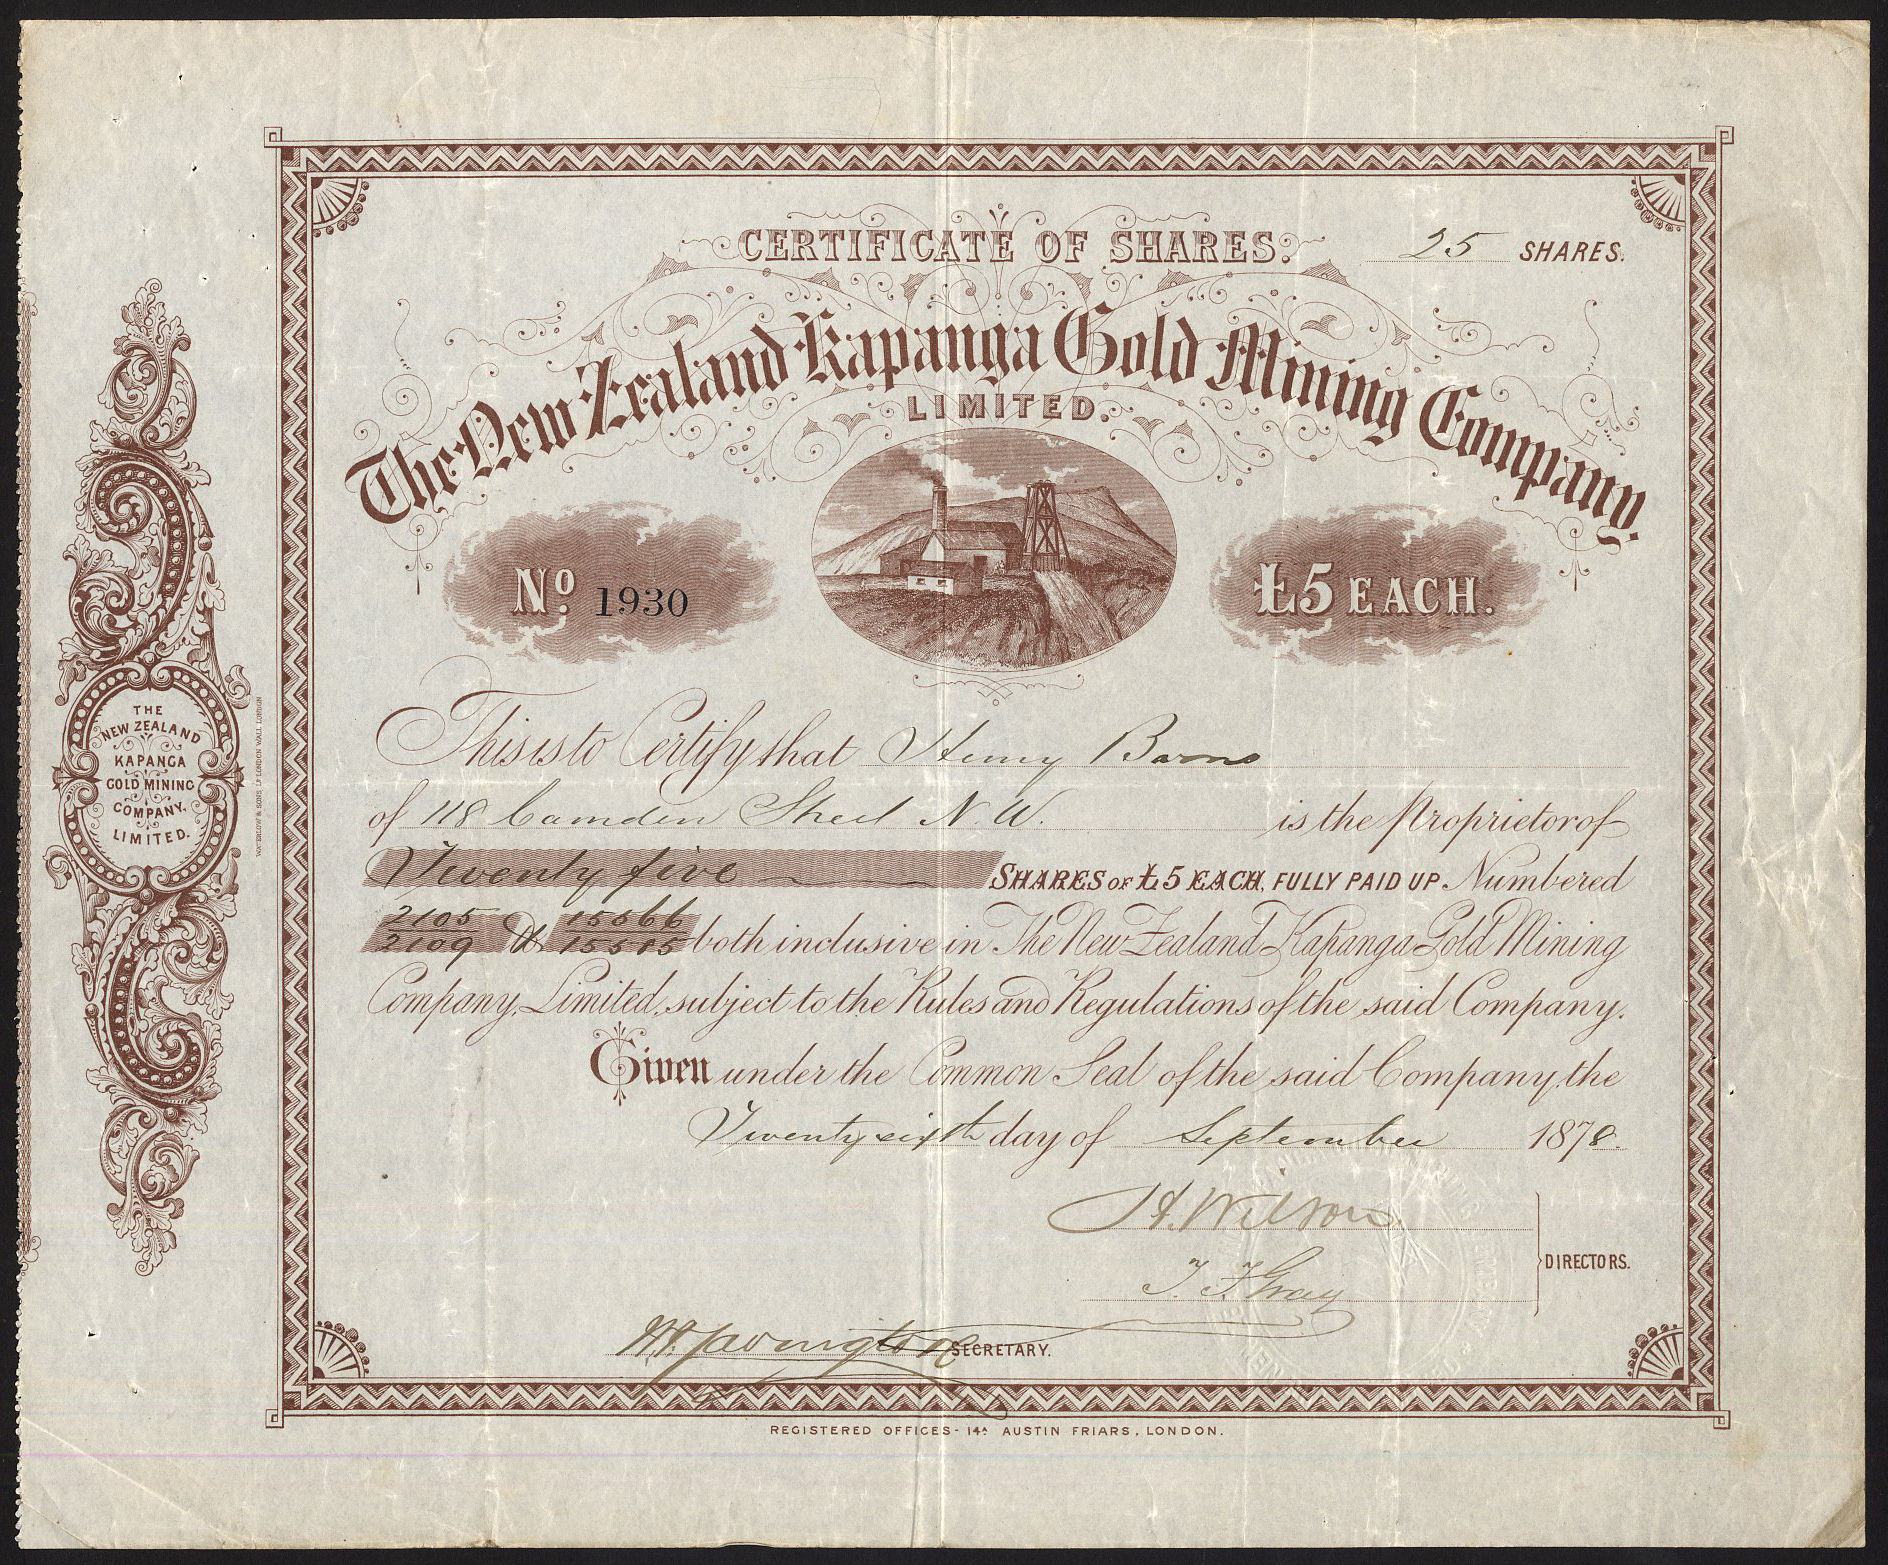 CERTIFICATE OF SHARES.
25 SHARES.
The New Zealand Kapanga Gold Mining Company,
LIMITED.
No. 1930
£5 EACH.
This is to Certify that Henry Barns
of 118 Camden Street N.W. is the Proprietor of
Twenty five SHARES OF £5 EACH, FULLY PAID UP Numbered
2105 15566
2109 & 15585 both inclusive in The New Zealand Kapanga Gold Mining
Company, Limited, subject to the Rules and Regulations of the said Company.
Given under the Common Seal of the said Company, the
Twenty sixth day of September 1878.
H. Wilson
T. F. Gray
DIRECTORS.
SECRETARY.
REGISTERED OFFICES - 14A AUSTIN FRIARS, LONDON.
THE
NEW ZEALAND
KAPANGA
GOLD MINING
COMPANY,
LIMITED.
WATERLOW & SONS, LD LONDON WALL LONDON